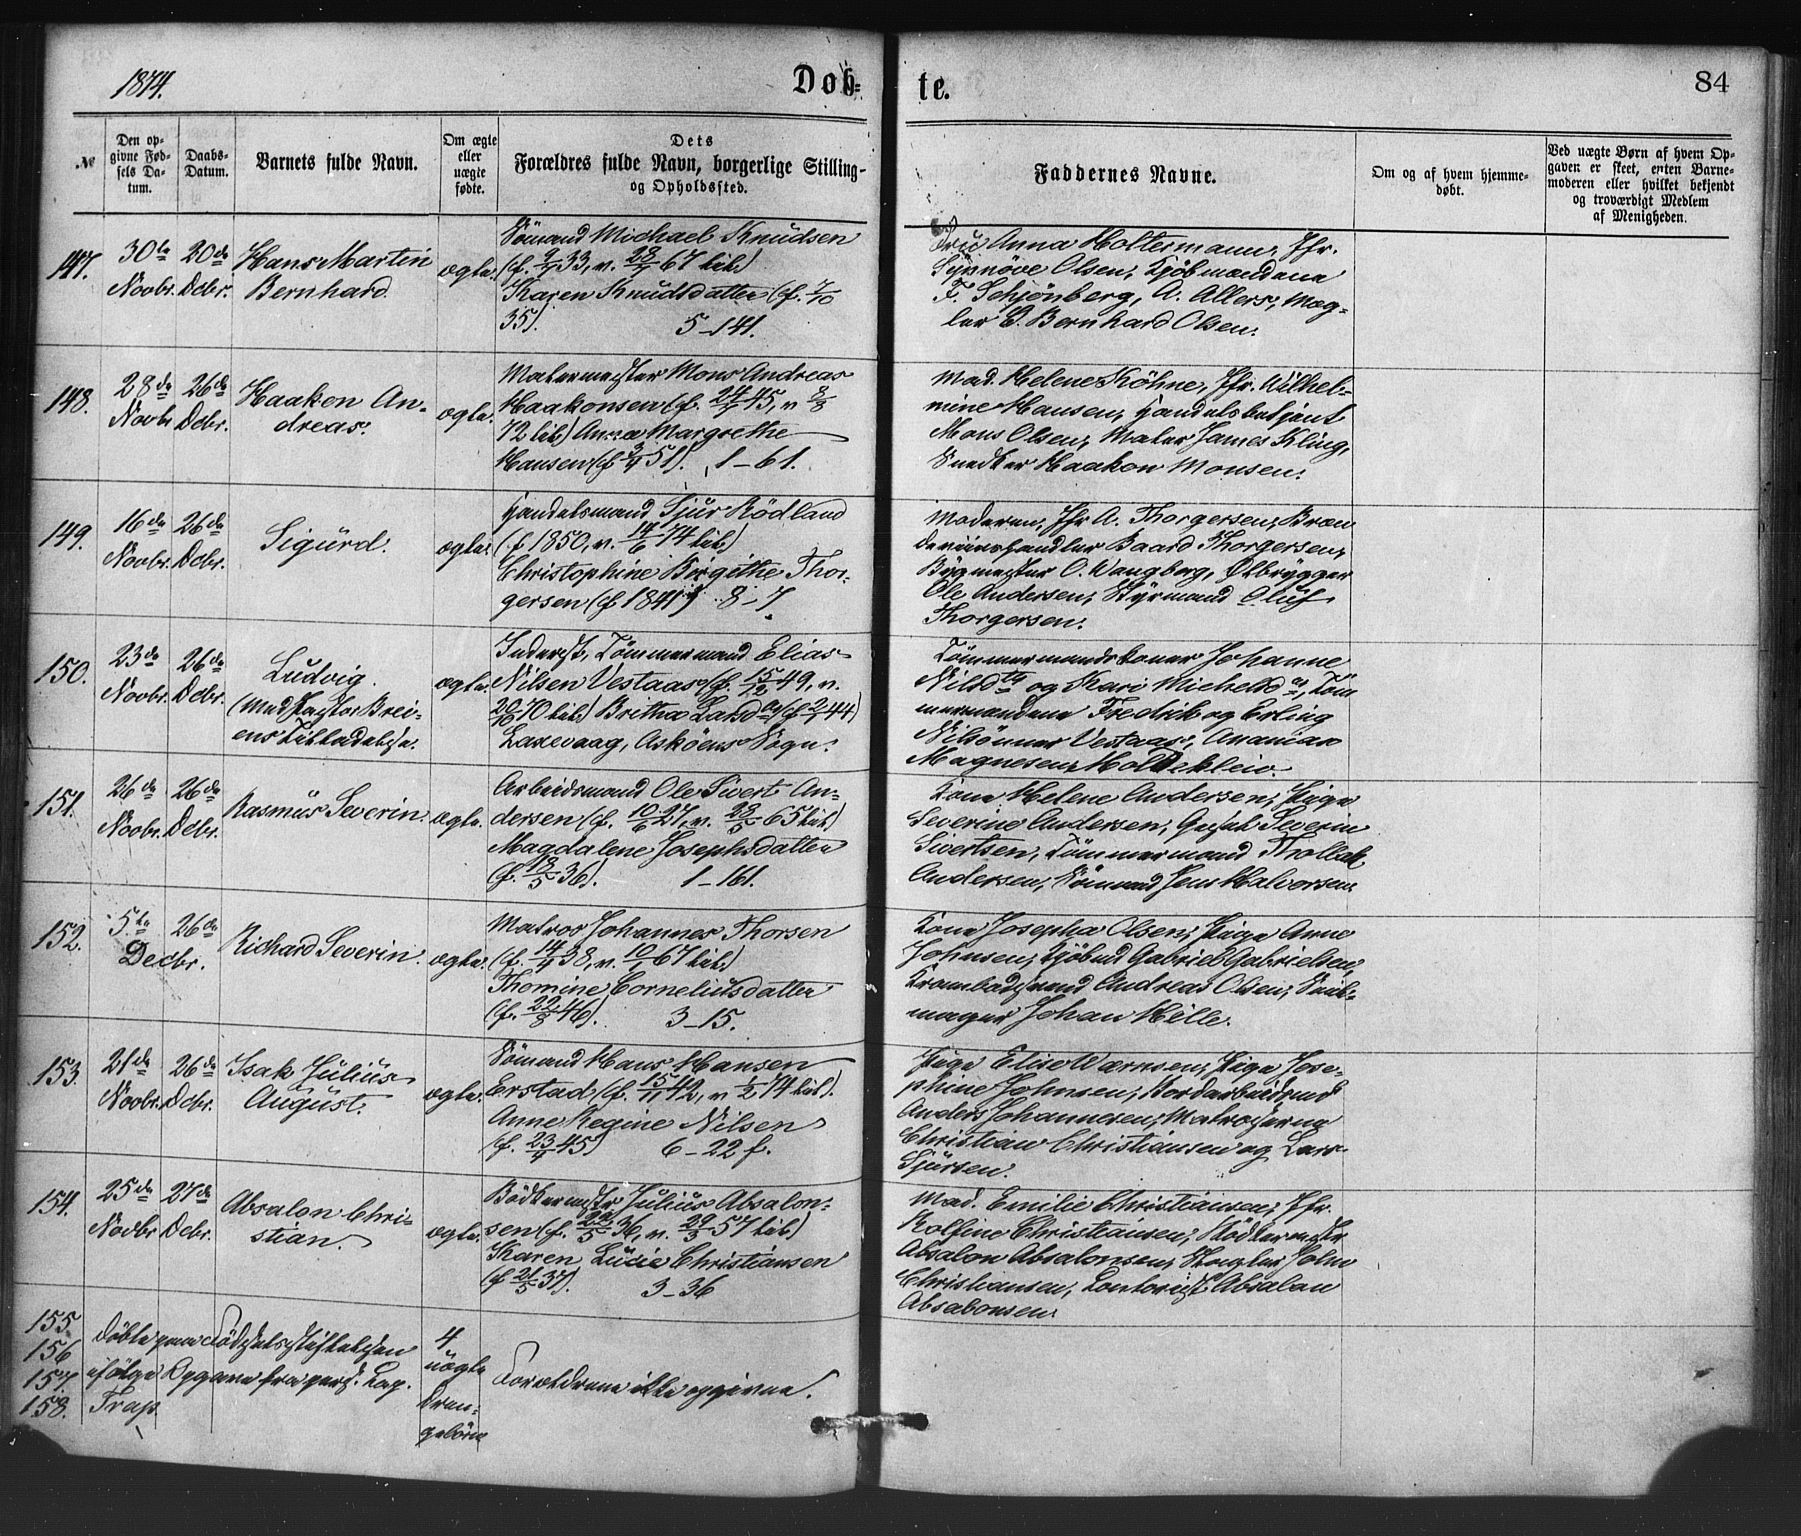 1874.
Døb-
te.
84
No
Den op-
givne Fød-
sels Da-
tum.
Daabs-
Datum.
Barnets fulde Navn.
Om ægte
eller
uægte
fødte.
Dets
Forældres fulde Navn, borgerlige Stilling
og Opholdssted.
Faddernes Navne.
Om og af hvem hjemme-
døbt.
Ved uægte Børn af hvem Op-
gaven er skeet, enten Barne-
moderen eller hvilket bekjendt
og troværdigt Medlem
af Menigheden.
147.
30te
Novbr.
20de
Dcbr.
Hans Martin
Bernhard
ægte.
Sömand Michael Knudsen
33, v. 67 hib.)
Karen Knudsdatter (f. 7/10
35). 5-141.
Fru Anna Holtermann, Jfr.
Synnöve Olsen, Kjöbmændene
F. Schjönberg, A. Allers, Mæg-
ler E. Bernhard Olsen.
148.
28de
Novbr.
26de
Dcbr.
Haakon An-
dreas.
ægte.
Malermester Mons Andreas
Haakonsen (f. 45, v.
72 hib) Anna Margrethe
Hansen (f. 51). 1-61.
Mad. Helene Köhne, Jfr. Wilhel-
mine Hansen, Handelsbetjent
Mons Olsen, Maler James Kling,
Snedker Haakon Monsen.
149.
16de
Novbr.
26de
Dcbr.
Sigurd.
ægte.
Handelsmand Sjur Rödland
(f. 1850, v. 14/6 74 hib.)
Christophine Birgithe Thor-
gersen (f. 1841) 8-7
Moderen, Jfr A. Thorgersen, Bræn
deviinshandler Baard Thorgersen,
Bygmester O. Wangberg, Ølbrygger
Ole Andersen, Styrmand Oluf
Thorgersen.
150.
23de
Novbr.
26de
Dcbr.
Ludvig.
(Med Pastor Brei-
ens Tilladelse.
ægte.
Inderst, Tömmermand Elias
Nilsen Vestaas (f. 15/12 49, v.
70 hib) Britha Larsd. (f. 44)
Laxevaag, Asköens Sogn.
Tömmermandskoner Johanne
Nilsd. og Kari Michelsd., Töm
mermændene Fredrik og Erling
Nilsönner Vestaas, Ananias
Magnesen Moldekleiv.
151.
26de
Novbr.
26de
Dcbr.
Rasmus Severin.
ægte.
Arbeidsmand Ole Sivert An-
dersen (f. 10/6 27, v. 28/5 65 hib)
Magdalene Josephsdatter
(f. 36). 1-161.
Kone Helene Andersen, Pige
Severine Andersen, Gesel Severin
Sivertsen, Tömmermand Thollak
Andersen, Sömand Jens Halvorsen.
152.
5te
Decbr.
26de
Richard Severin.
ægte.
Matros Johannes Thorsen
(f. 14/4 38, v. 67 hib.)
Thomine Corneliusdatter
(f. 22/8 46). 3-15.
Kone Josepha Olsen, Pige Anne
Johnsen, Kjöbmd Gabriel Gabrielsen
Krambodsvend Andreas Olsen, Seil-
mager Johan Hille.
153.
21de
Novbr.
26de
Dcbr.
Isak Julius
August.
ægte.
Sömand Hans Hansen
Erstad (f. 15/11 42, v. 1/2 74 hib).
Anne Regine Nilsen
(f. 23/4 45) 6-22 f.
Pige Elise Wærnsen, Pige Jose-
phine Johnsen, Jordarbeidsmd
Anders Johannesen, Matroserne
Christian Christiansen og Lars
Sjursen.
154.
25de
Novbr.
27de
Dcbr.
Absalon Chri-
stian.
ægte.
Bödkermestr Julius Absalon-
sen (f. 36, v. 29/3 57 hib)
Karen Lucie Christiansen
(f. 21/5 37). 3-36
Mad. Emilie Christiansen, Jfr.
Rolfine Christiansen, Bödkermestr
Absalon Absalonsen, Skoglær John
Christiansen, Contorist Absalon
Absalonsen.
155.
156
157
158.
döbte paa Födselsstiftelsen
ifölge Opgave fra pers. Cap.
Trap.
4
uægte
Dren-
gebörn
Forældrene ikke opgivne.